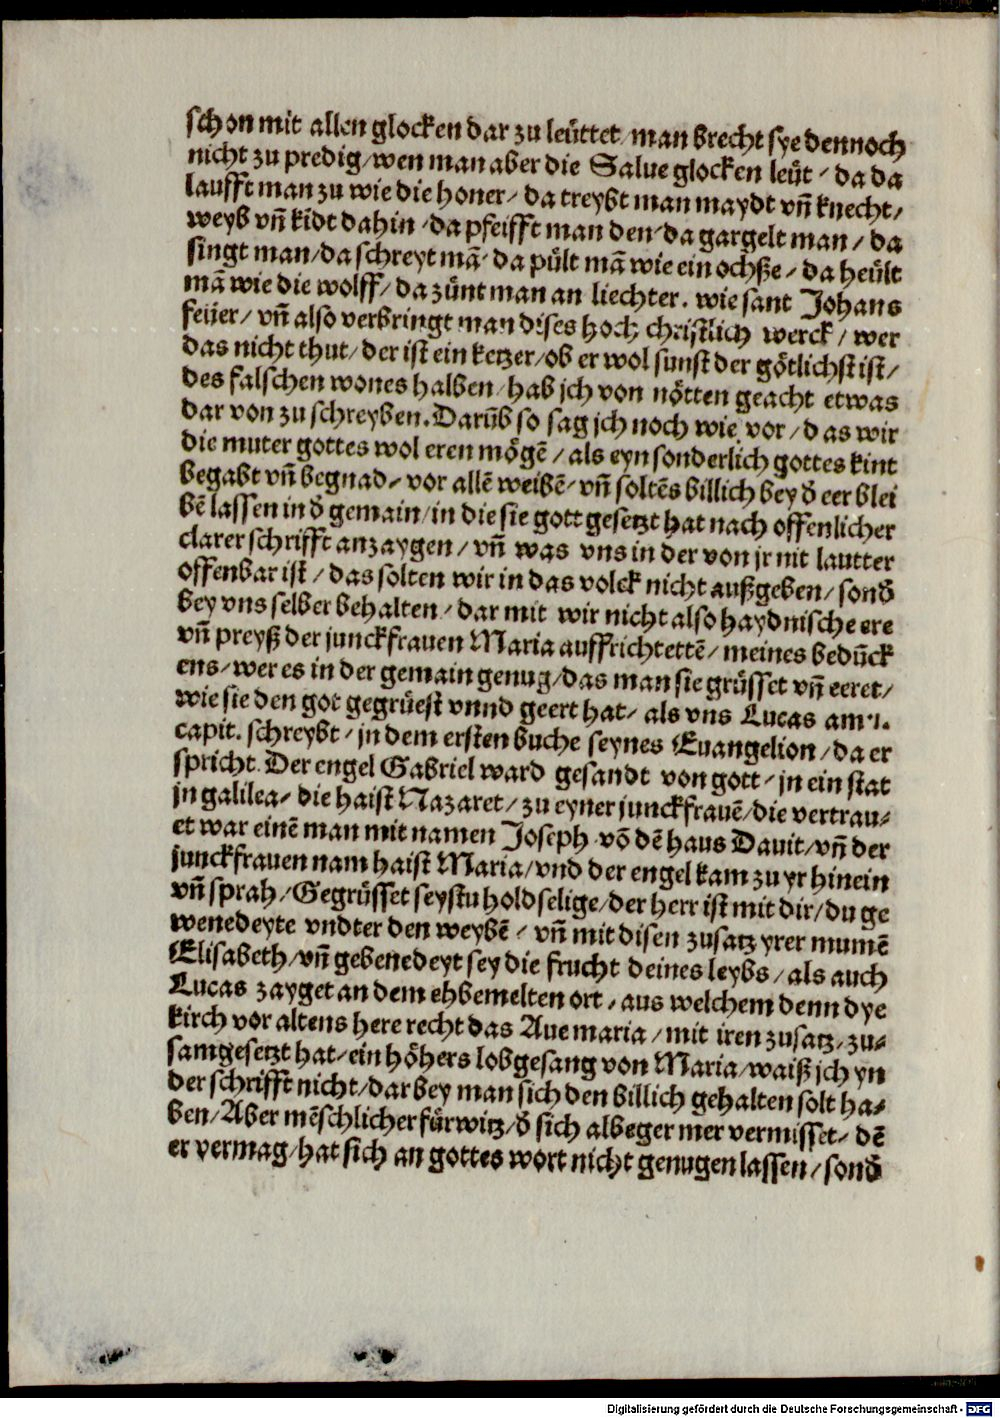 schon mit allen glocken dar zu leüttet / man brecht sye dennoch
nicht zu predig / wen man aber die Salue glocken leüt / da da
laufft man zu wie die honer / da treybt man maydt vn̄ knecht /
weyb vn̄ kīdt dahin / da pfeifft man den / da gargelt man / da
singt man / da schreyt mā / da pült mā wie ein ochße / da heült
mā wie die wolff / da zünt man an liechter . wie sant Johans
feijer / vn̄ also verbringt man dises hoch christlich werck / wer
das nicht thut / der ist ein ketzer / ob er wol sunst der götlichst ist /
des falschen wones halben / hab jch von nötten geacht etwas
dar von zu schreyben. Darūb so sag jch noch wie vor / das wir
die muter gottes wol eren mögē / als eyn sonderlich gottes kint
begabt vn̄ begnad / vor allē weibē / vn̄ soltēs billich bey d̄ eer blei
bē lassen in d̄ gemain / in die sie gott gesetzt hat nach offenlicher
clarer schrifft anzaygen / vn̄ was vns in der von jr nit lautter
offenbar ist / das solten wir in das volck nicht außgeben / sond̄
bey vns selber behalten / dar mit wir nicht also haydnische ere
vn̄ preyß der junckfrauen Maria auffrichtettē / meines bedūck
ens / wer es in der gemain genug / das man sie grüsset vn̄ eeret /
wie sie den got gegrüest vnnd geert hat / als vns Lucas am 1.
capit. schreybt / jn dem ersten buche seynes Euangelion / da er
spricht. Der engel Gabriel ward gesandt von gott / jn ein stat
jn galilea / die haist Nazaret / zu eyner junckfrauē / die vertrau⸗
et war einē man mit namen Joseph vō dē haus Dauit / vn̄ der
junckfrauen nam haist Maria / vnd der engel kam zu yr hinein
vn̄ sprah / Gegrüsset seystu holdselige / der herr ist mit dir / du ge
wenedeyte vndter den weybē / vn̄ mit disen zusatz yrer mumē
Elisabeth / vn̄ gebenedeyt sey die frucht deines leybs / als auch
Lucas zayget an dem ehbemelten ort / aus welchem denn dye
kirch vor altens here recht das Aue maria / mit iren zusatz / zu⸗
samgesetzt hat / ein höhers lobgesang von Maria / waiß jch yn
der schrifft nicht / dar bey man sich den billich gehalten solt ha⸗
ben / Aber mēschlicher fürwitz / d̄ sich albeger mer vermisset / dē
er vermag / hat sich an gottes wort nicht genugen lassen / sond̄
Digitalisierung gefördert durch die Deutsche Forschungsgemeinschaft - DFG